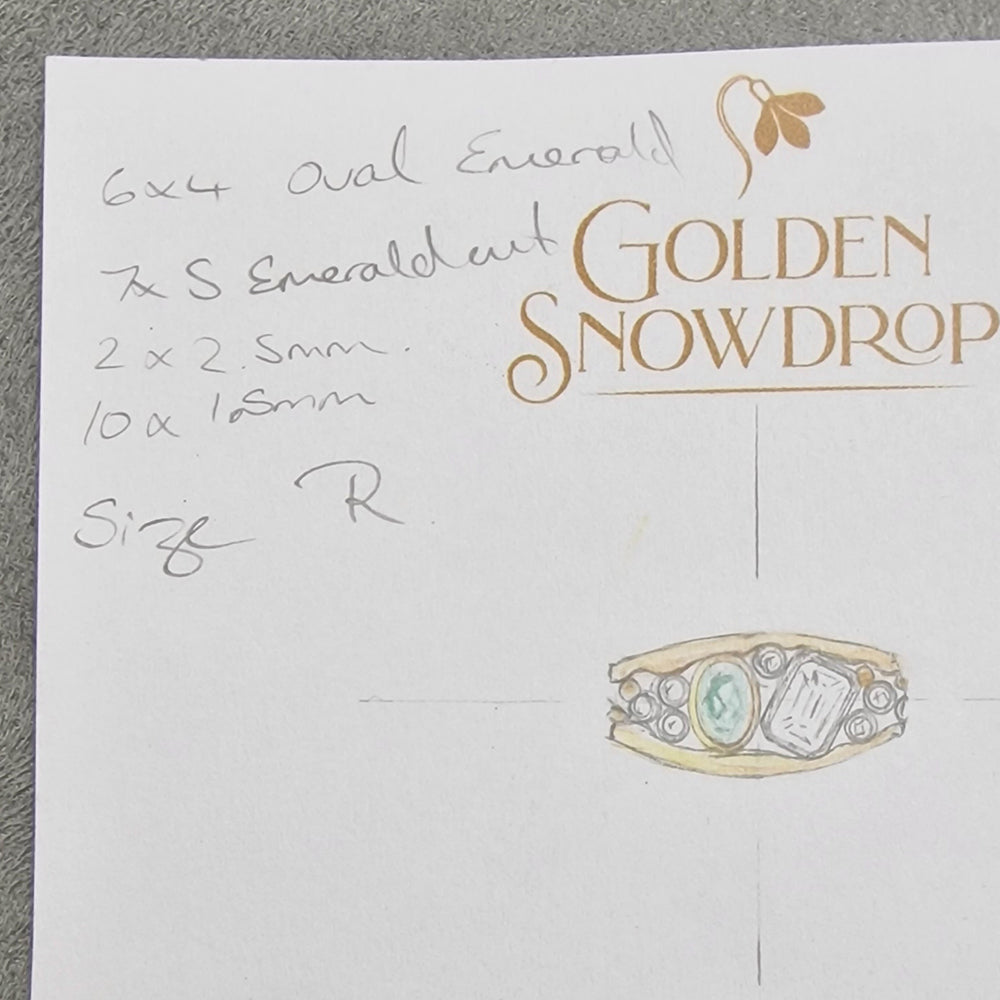 6x4 Oval Emerald
7x5 Emerald cut
2 x 2.5mm.
10 x 1.5mm
Size R
GOLDEN
SNOWDROP